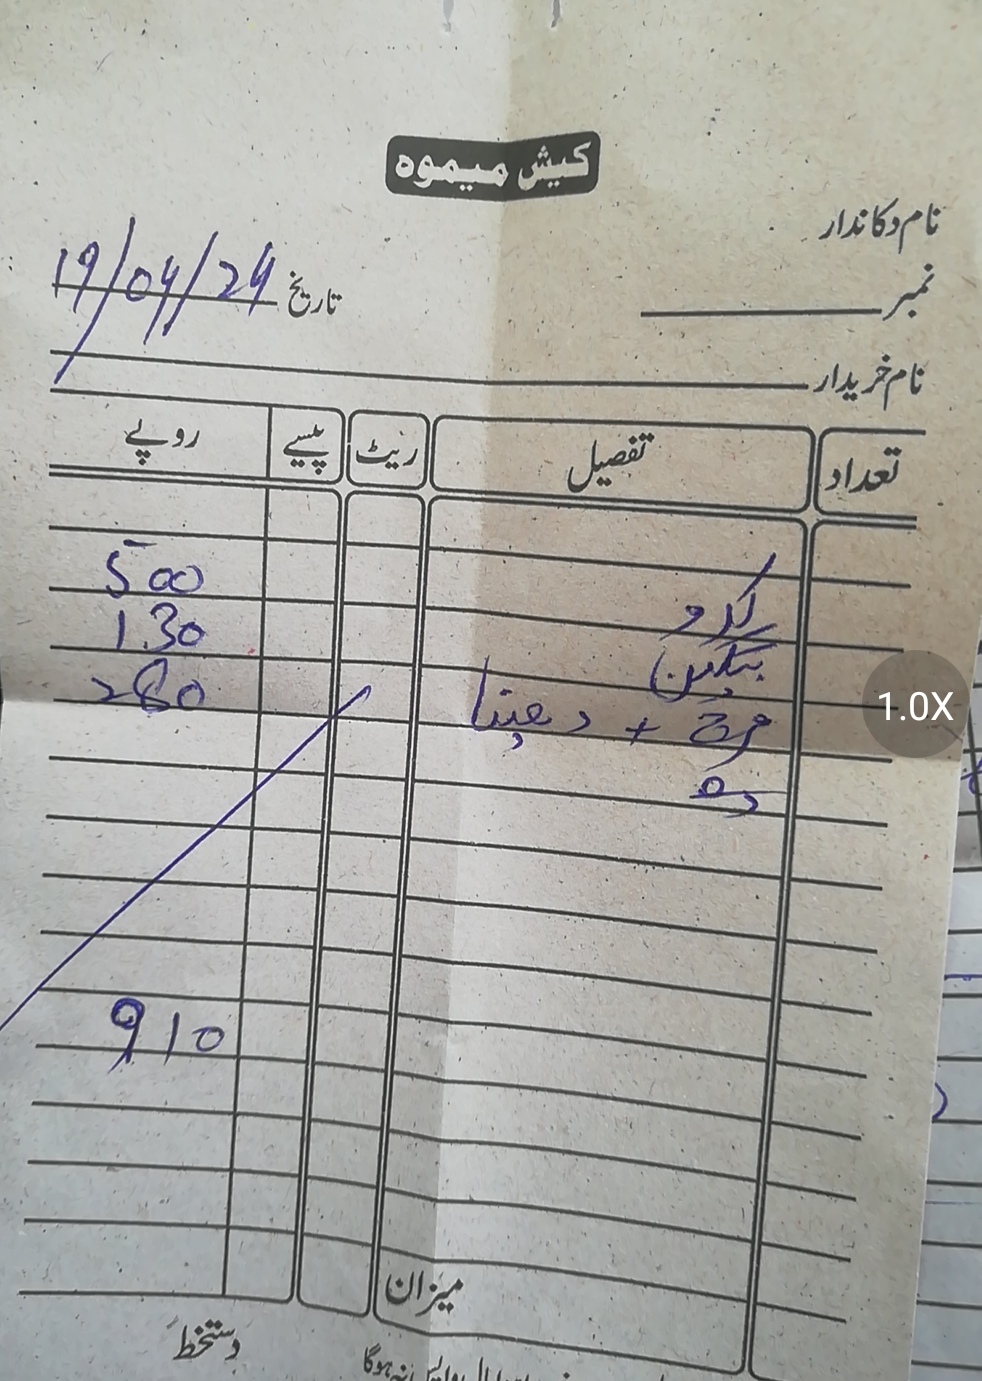 کیش میموہ
نام دکاندار
نمبر
تاریخ 19/04/24
نام خریدار
تعداد تفصیل ریٹ پیسے روپے
کدو 500
بینگن 130
مرچ + دھنیا 280
910
میزان
دستخط
1.0X